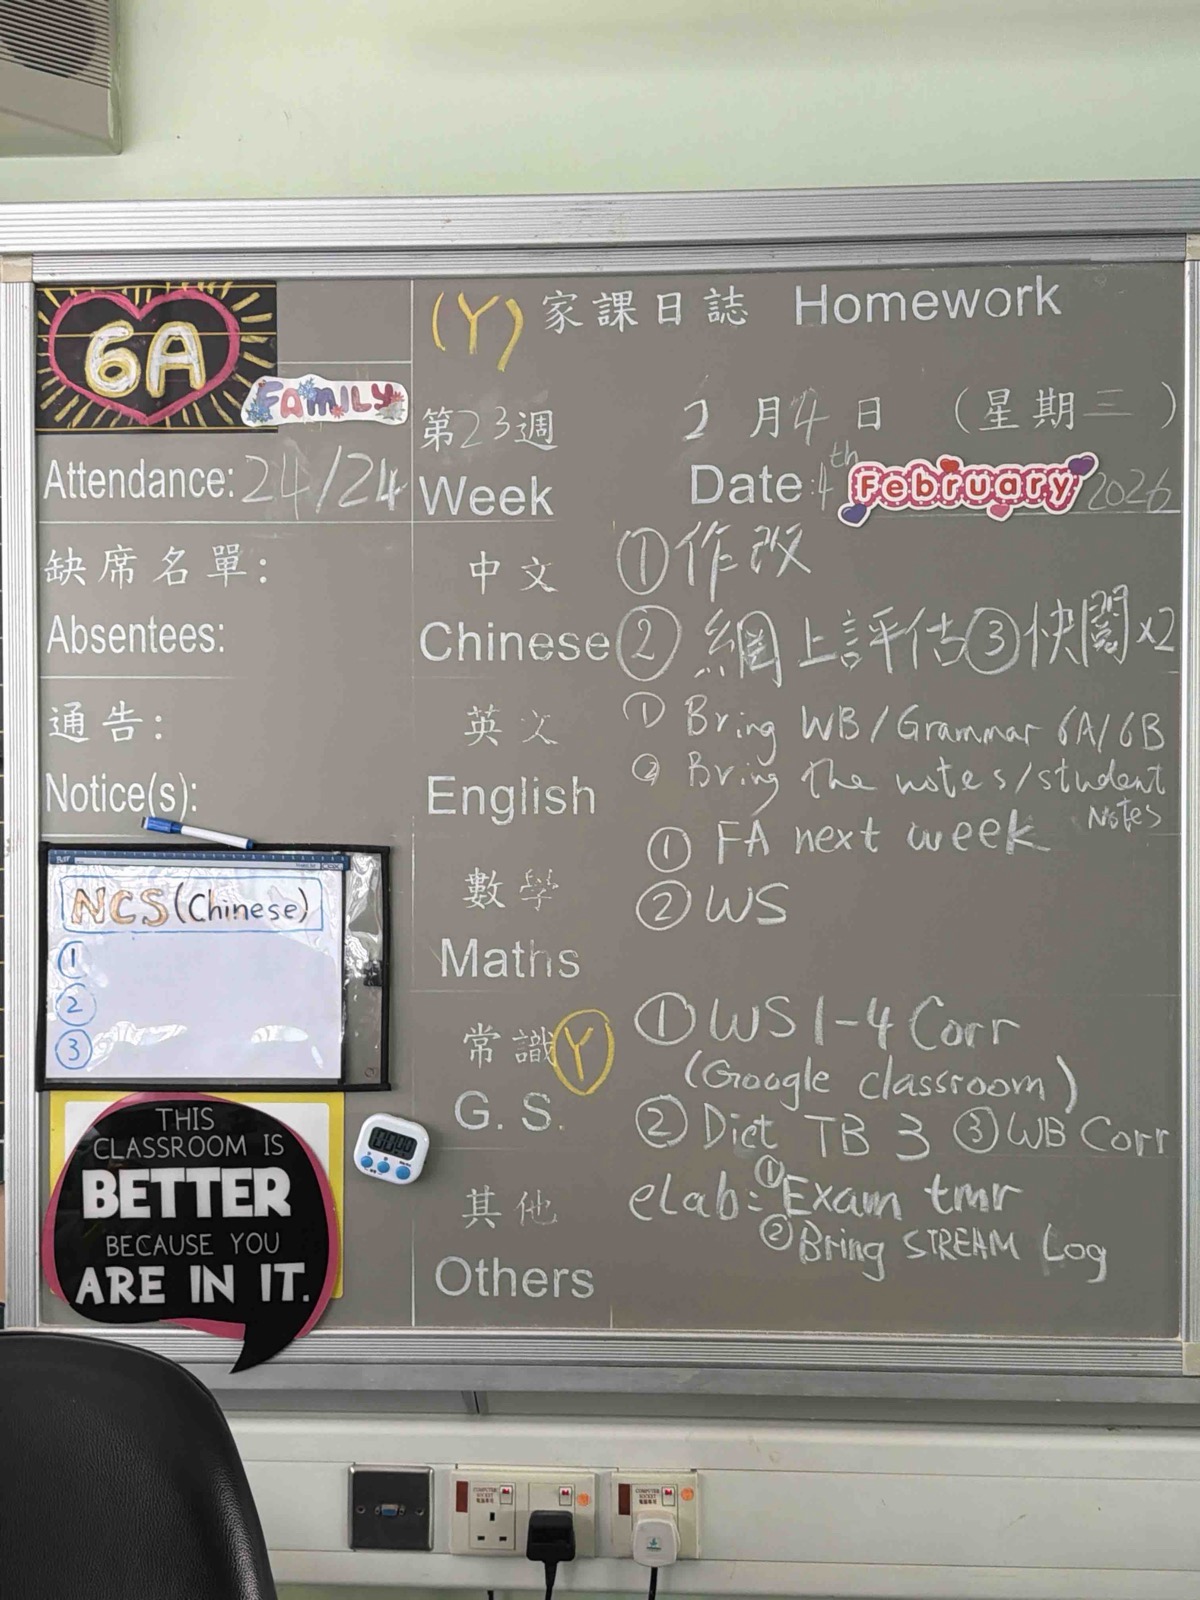 6A
FAMILY
(Y) 家課日誌 Homework
第23週 2月4日 (星期三)
Attendance: 24/24
Week Date: 4th February 2026
缺席名單:
Absentees:
通告:
Notice(s):
中文 ①作改
Chinese ②網上評估③快閱x2
英文 ① Bring WB/Grammar 6A/6B
English ② Bring the notes/student Notes
數學 ① FA next week
Maths ② WS
常識 Y ① WS 1-4 Corr
(Google classroom)
G.S. ② Dict TB 3 ③ WB Corr
其他 elab: ① Exam tmr
Others ② Bring STREAM Log
NCS (Chinese)
①
②
③
THIS
CLASSROOM IS
BETTER
BECAUSE YOU
ARE IN IT.
00:00
COMPUTER
SOCKET
電腦專用
COMPUTER
SOCKET
電腦專用